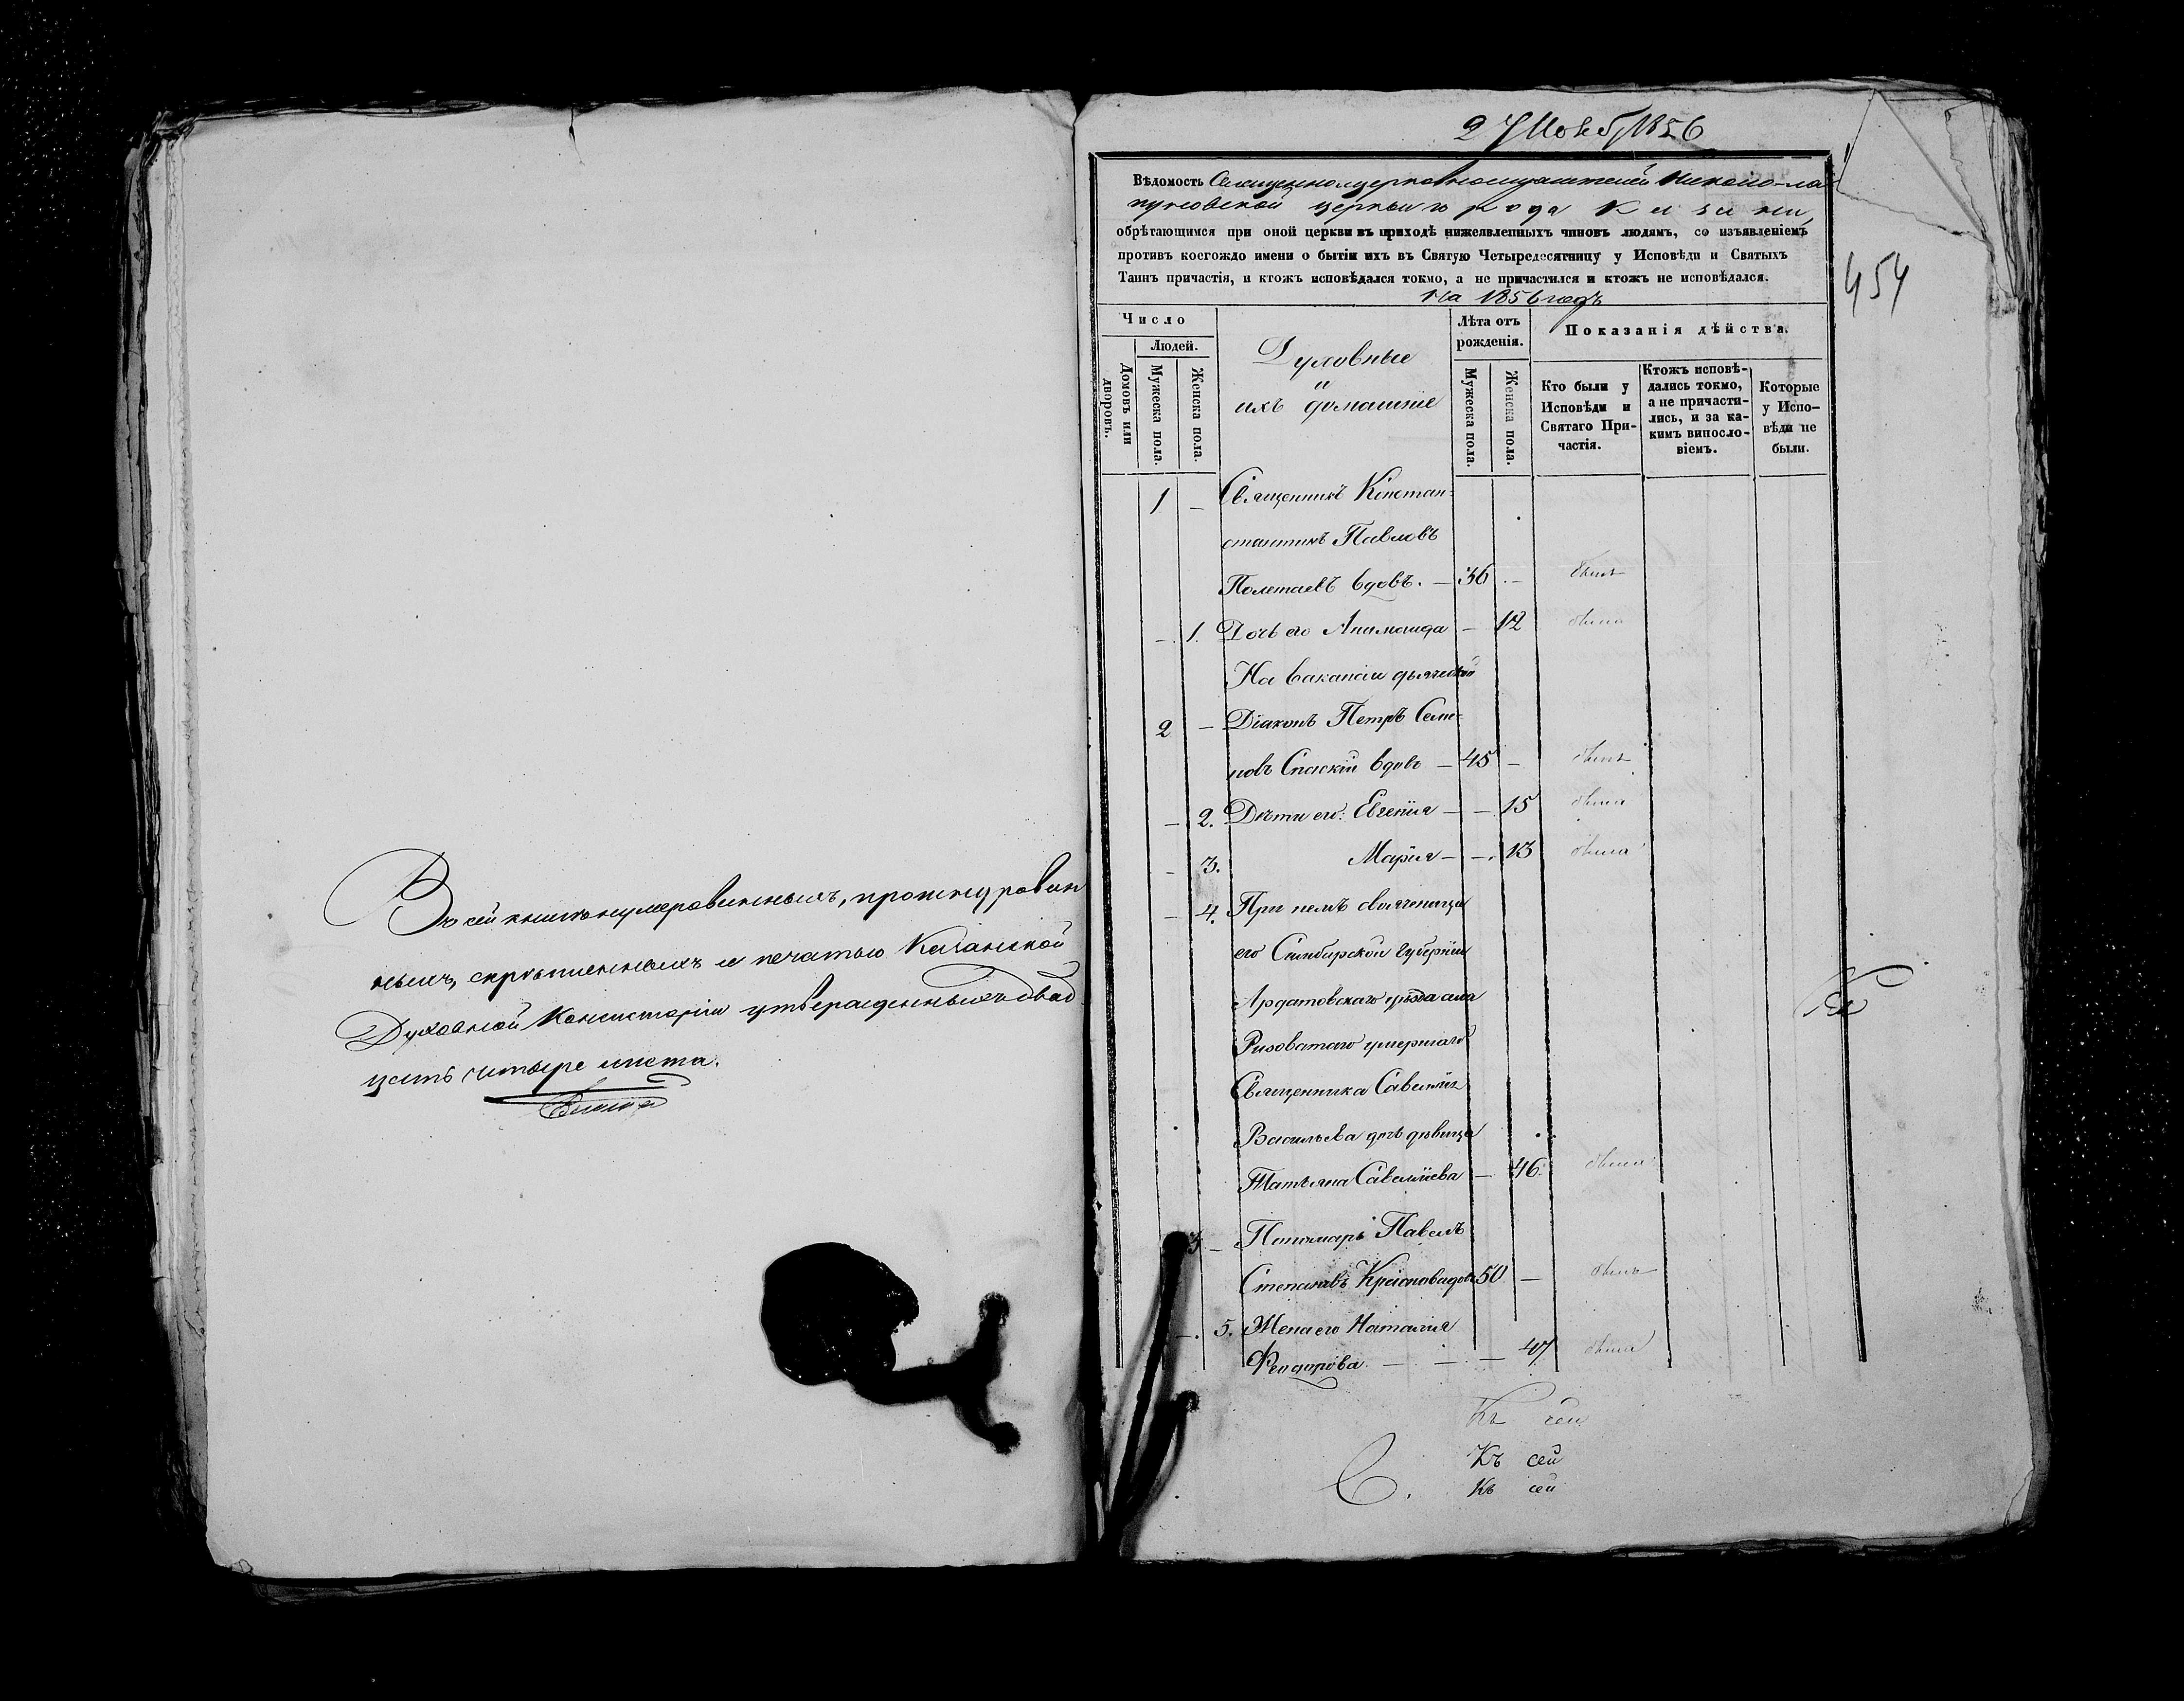 Въ сей книгѣ нумерованныхъ, прошнурован
ныхъ, скрѣпленныхъ и печатью Казанской
Духовной Консисторіи утвержденныхъ двад
цать четыре листа.
27 Нояб 1856
Вѣдомость Священноцерковнослужителей Николо-ля
пуновской церкви города Казани,
обрѣтающимся при оной церкви въ приходѣ нижеявленныхъ чиновъ людямъ, со изъявленіемъ
противъ коегождо имени о бытіи ихъ въ Святую Четыредесятницу у Исповѣди и Святыхъ
Таинъ причастія, и ктожъ исповѣдался токмо, а не причастился и ктожъ не исповѣдался.
на 1856 годъ
454
Число
Людей.
Домовъ или дворовъ.
Мужеска пола.
Женска пола.
Духовные
и
ихъ домашніе
Лѣта отъ
рожденія.
Мужеска пола.
Женска пола.
Показанія дѣйства.
Кто были у
Исповѣди и
Святаго При-
частія.
Ктожъ исповѣ-
дались токмо,
а не причасти-
лись, и за ка-
кимъ виносло-
віемъ.
Которые
у Испо-
вѣди не
были.
1 — Священникъ Констан-
стантинъ Павловъ
Полетаевъ вдовъ. — 36 — былъ
— 1. Дочь его — 12 была
На вакансіи дьяческой
2 — Діаконъ Петръ Семе-
новъ Спаскій вдовъ — 45 — былъ
— 2. Дѣти его: Евгенія — — 15 была
— 3. Марія — — 13 была
— 4. При немъ своячениця
его Симбирской губерніи
Ардатовскаго уѣзда села
Ризоватаго умершаго
Священника Савелія
Васильева дочь дѣвица
Татьяна Савеліева — 46 была
3 — Пономарь Павелъ
Степановъ Красновидовъ 50 — былъ
— 5. Жена его Наталія
Феодорова — — — 47 была
Къ сей
Къ сей
С. Къ сей